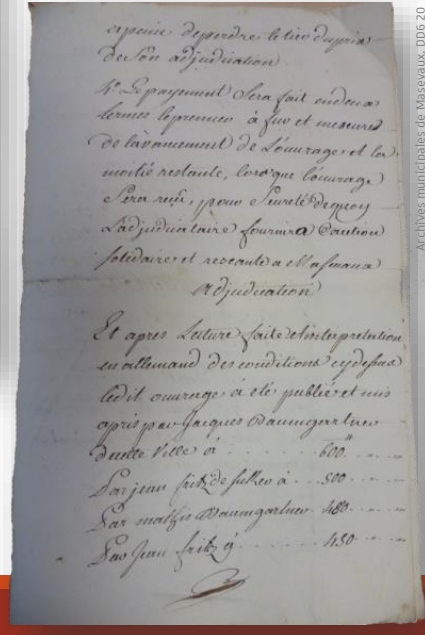 a peine de perdre le tier du prix
de son adjudication
4.° Le payement Sera fait en deux
termes le premier à fur et mesure
de lavancement de L'ouvrage et la
moitié restante, lorsque l'ouvrage
Sera reçu, pour Sureté de quoy
L'adjudicataire fournira Caution
solidaire et resceante a Masmunx
Adjudication
Et apres Lecture faite et interpretation
en allemand des conditions cy dessus
ledit ouvrage à été publié et mis
a prix par Jacques Baumgartner
Ville à . . . . . . 600.ʰ . . .
Par jean fritz de à . . . 500 . . .
Par mathis Baumgartner . 480 . . .
Par Jean fritz à . . . . . . 450 . . .
Archives municipales de Masevaux, DD6 20